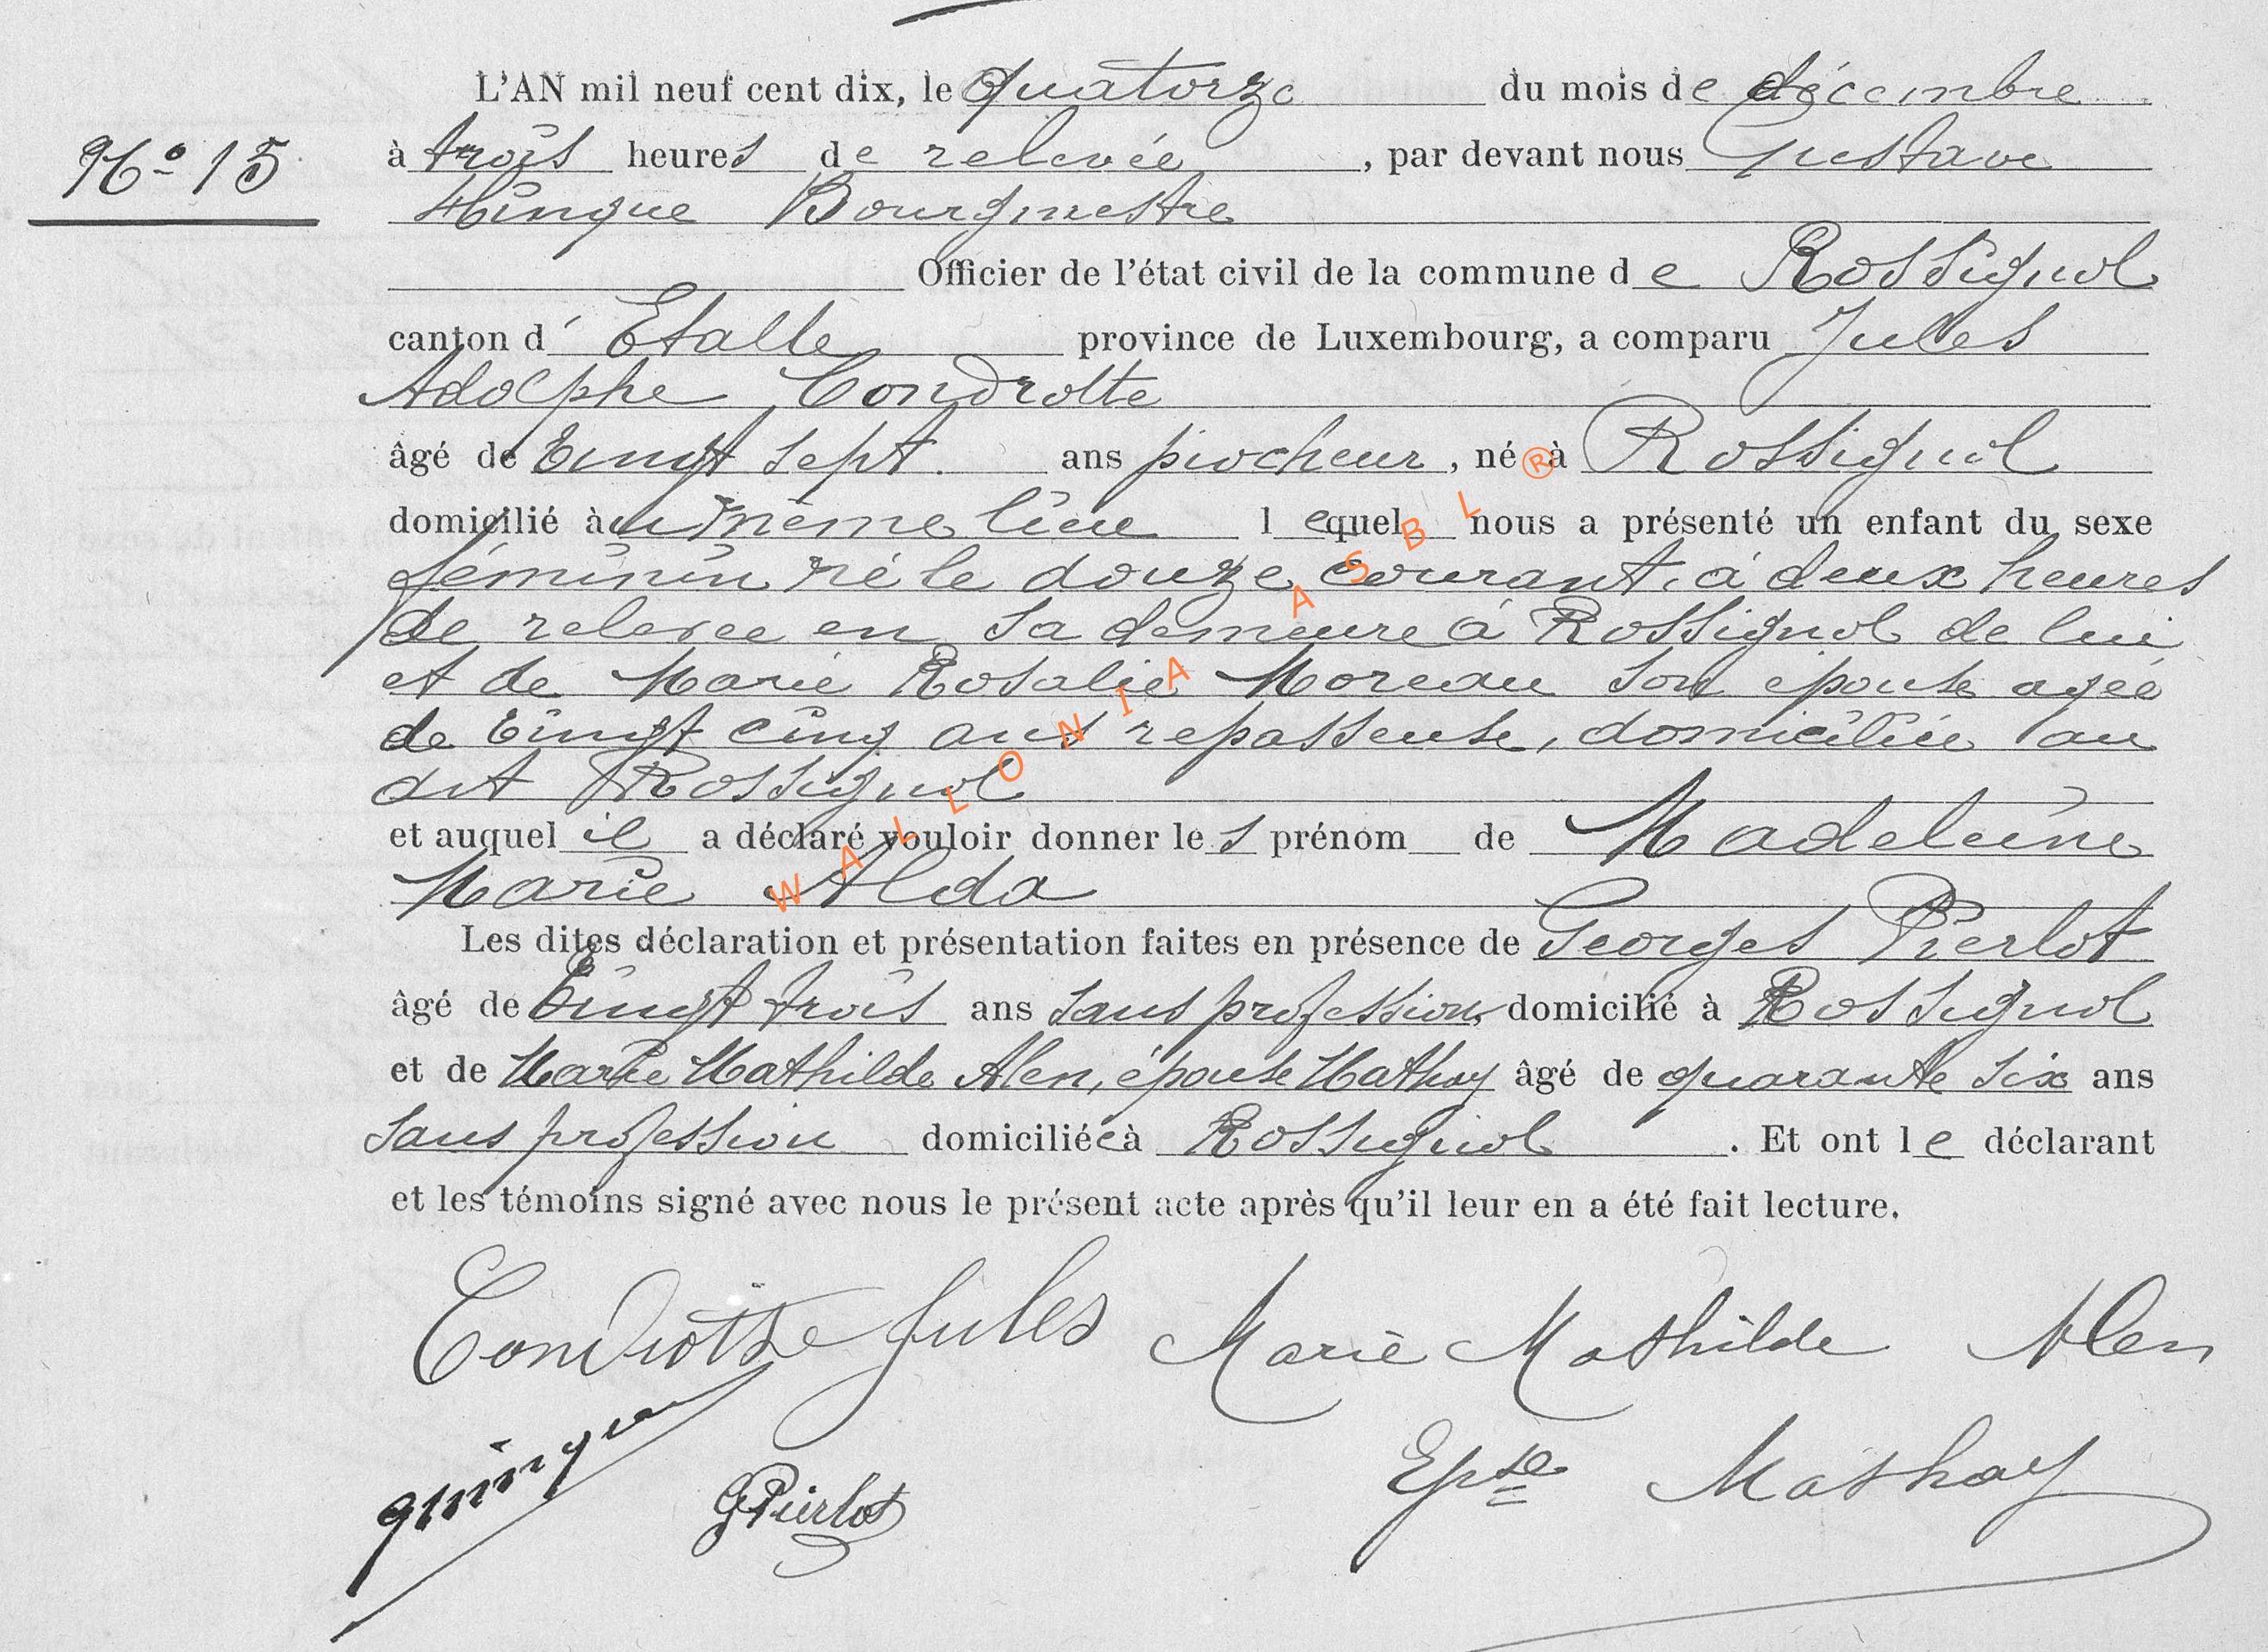 L'AN mil neuf cent dix, le quatorze du mois de décembre
N° 15
à trois heures de relevée, par devant nous Gustave
Hinque Bourgmestre
Officier de l'état civil de la commune de Rossignol
canton d'Etalle province de Luxembourg, a comparu Jules
Adolphe Condrotte
âgé de Vingt sept. ans piocheur, né à Rossignol
domicilié àu même lieu lequel nous a présenté un enfant du sexe
féminin né le douze courant, à deux heures
de relevee en sa demeure à Rossignol de lui
et de Marie Rosalie Moreau son épouse agée
de Vingt cinq ans repasseuse, domiciliée au
dit Rossignol
et auquel il a déclaré vouloir donner les prénom de Madeleine
Marie Alda
Les dites déclaration et présentation faites en présence de Georges Pierlot
âgé de Vingt trois ans sans profession, domicilié à Rossignol
et de Marie Mathilde Alen, épouse Mathay âgé de quarante six ans
sans profession domiciliée à Rossignol. Et ont le déclarant
et les témoins signé avec nous le présent acte après qu'il leur en a été fait lecture.
Condrotte Jules Marie Mathilde Alen
GPierlot Epse Mathay
WALLONIA ASBL ®